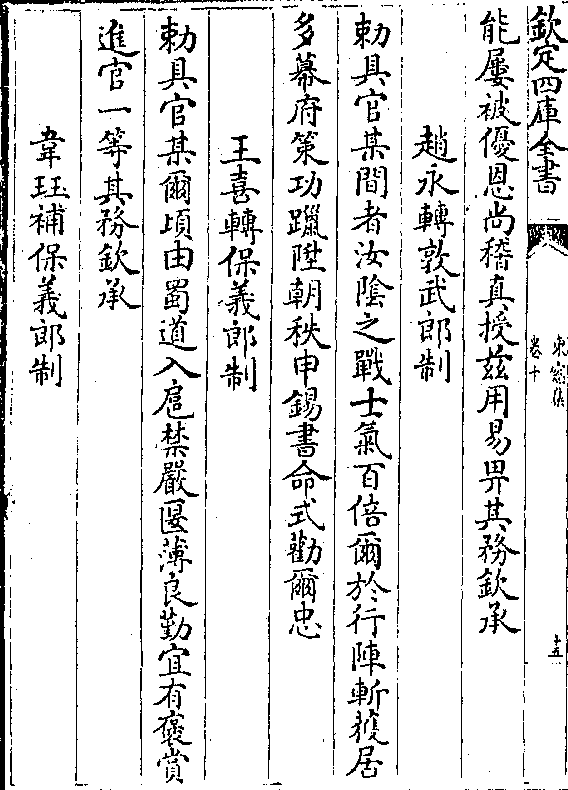 欽定四庫全書
卷十
十五
能屢被優恩尚稽真授兹用易畀其務欽承
趙永轉敦武郎制
勅具官某間者汝隂之戰士氣百倍爾於行陣斬獲居
多幕府策功躐陞朝秩申錫書命式勸爾忠
王喜轉保義郎制
勅具官某爾頃由蜀道入扈禁嚴匽薄良勤宜有褒賞
進官一等其務欽承
韋珏補保義郎制